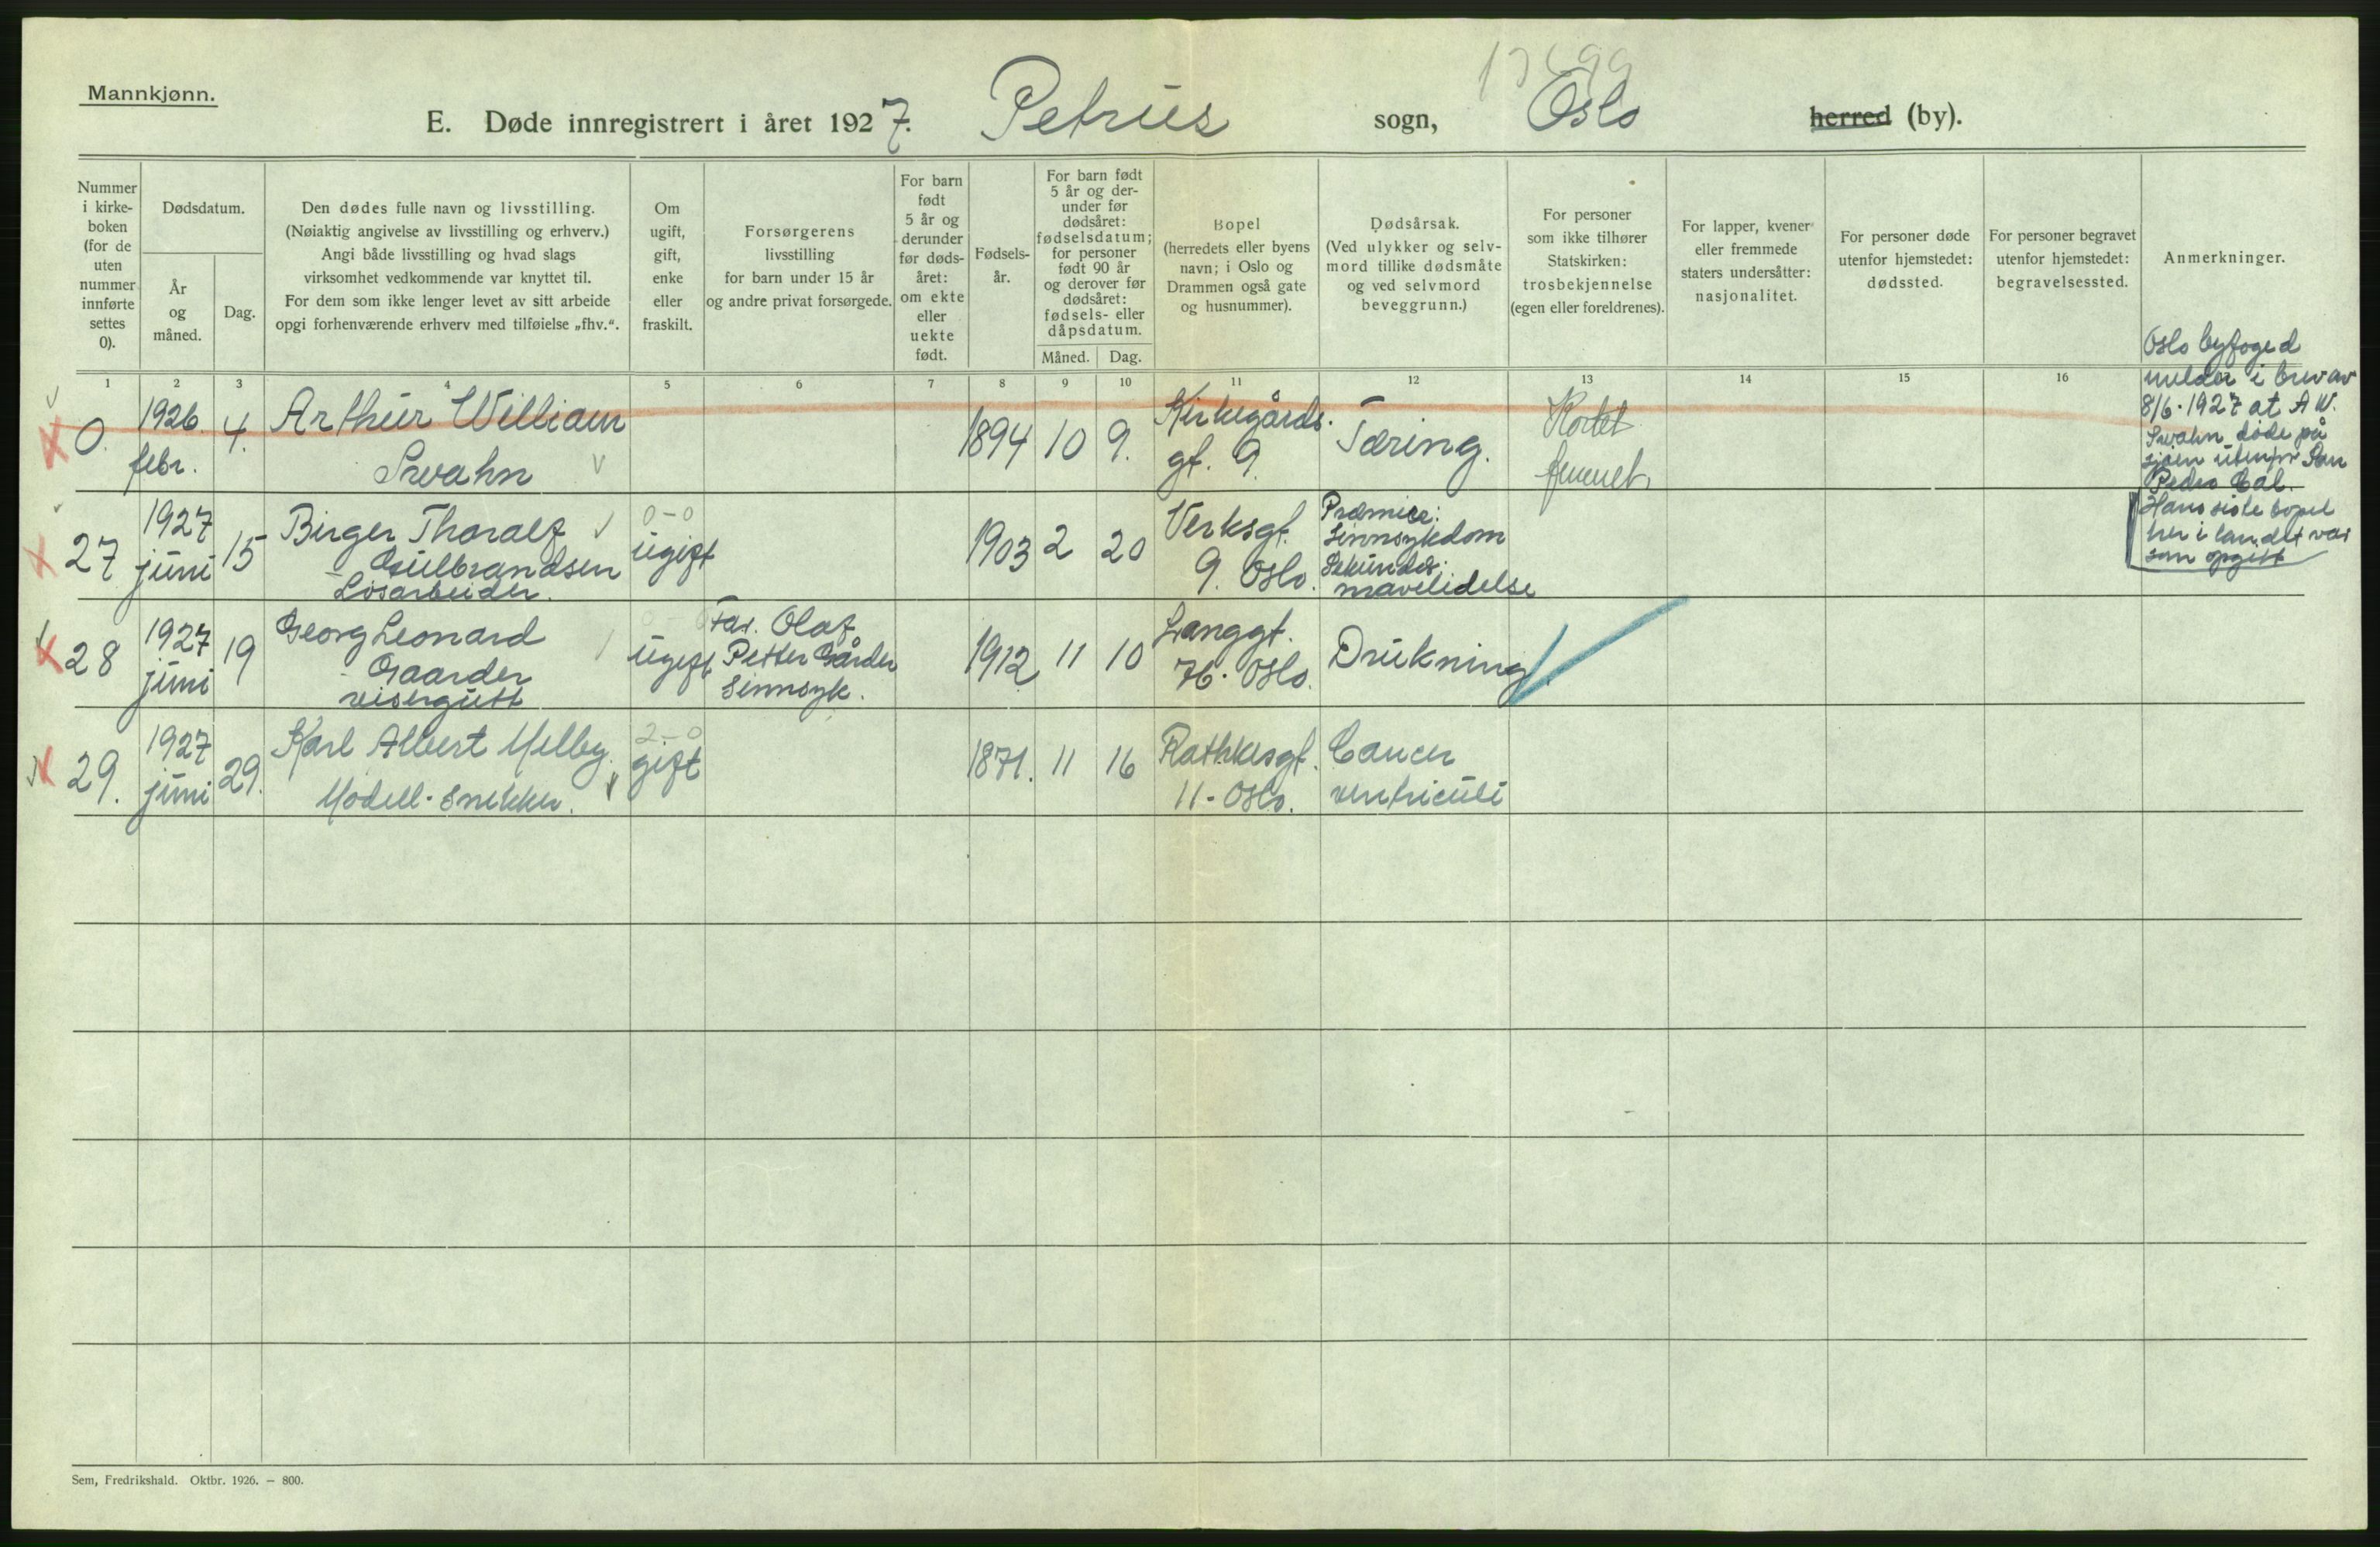 17699
Mannkjønn.
E. Døde innregistrert i året 1927. Petrus sogn, Oslo herred (by).
Nummer
i kirke-
boken
(for de
uten
nummer
innførte
settes
0).
Dødsdatum.
År
og
måned.
Dag.
Den dødes fulle navn og livsstilling.
(Nøiaktig angivelse av livsstilling og erhverv.)
Angi både livsstilling og hvad slags
virksomhet vedkommende var knyttet til.
For dem som ikke lenger levet av sitt arbeide
opgi forhenværende erhverv med tilføielse „fhv.“.
Om
ugift,
gift,
enke
eller
fraskilt.
Forsørgerens
livsstilling
for barn under 15 år
og andre privat forsørgede.
For barn
født
5 år og
derunder
før døds-
året:
om ekte
eller
uekte
født.
Fødsels-
år.
For barn født
5 år og der-
under før
dødsåret:
fødselsdatum;
for personer
født 90 år
og derover før
dødsåret:
fødsels- eller
dåpsdatum.
Måned. Dag.
Bopel
(herredets eller byens
navn; i Oslo og
Drammen også gate
og husnummer).
Dødsårsak.
(Ved ulykker og selv-
mord tillike dødsmåte
og ved selvmord
beveggrunn.)
For personer
som ikke tilhører
Statskirken:
trosbekjennelse
(egen eller foreldrenes).
For lapper, kvener
eller fremmede
staters undersåtter:
nasjonalitet.
For personer døde
utenfor hjemstedet:
dødssted.
For personer begravet
utenfor hjemstedet:
begravelsessted.
Anmerkninger.
1 2 3 4 5 6 7 8 9 10 11 12 13 14 15 16
0. 1926. febr. 4. Arthur William
Swahn
1894 10 9. Kirkegårds.
gt. 9. Tæring. Kortet
fjernet.
Oslo byfoged
melder i brev av
8/6-1927 at A W.
Swahn døde på
sjøen utenfor San
Pedro Cal.
Hans siste bopel
her i landet var
som opgitt
27 1927 juni 15 Birger Thoralf
Gulbrandsen
Løsarbeider.
0-0
ugift 1903 2 20 Verksgt.
9. Oslo.
Præmiær:
Sinnsykdom
Sekundær:
mavelidelse
28 1927 juni 19 Georg Leonard
Gaarder
visergutt
ugift Far. Olaf
Petter Gårder
Sinnsyk.
1912 11 10 Langgt.
76. Oslo. Drukning
29. 1927 juni 29. Karl Albert Melby.
Modell-Snekker.
2-0
gift 1871. 11 16 Rathkesgt.
11-Oslo. Cancer
ventriculi
Sem, Fredrikshald. Oktbr. 1926. — 800.